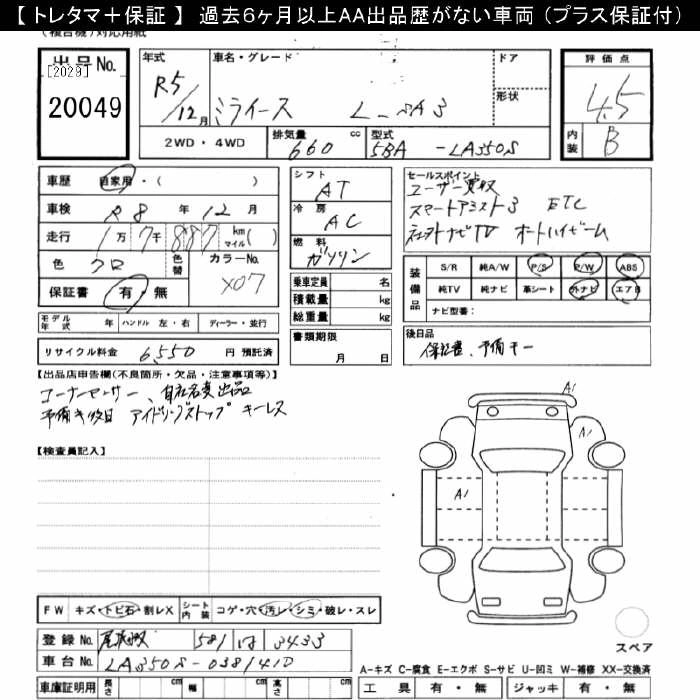 【トレタマ＋保証】 過去6ヶ月以上AA出品歴がない車両（プラス保証付）
出品No.
[2029]
20049
年式
R5/12月
車名・グレード
ミライース L-SA3
ドア
形状
評価点
4.5
内装
B
2WD・4WD
排気量
660 cc
型式
5BA-LA350S
車歴 自家用・( )
車検 R8年12月
走行 1万7千887 km マイル( )
色 クロ 色替 カラーNo. X07
保証書 有・無
シフト
AT
冷房
AC
燃料
ガソリン
乗車定員 名
積載量 kg
総重量 kg
セールスポイント
ユーザー買取
スマートアシスト3 ETC
社外ナビTV オートハイビーム
装備品
S/R 純A/W P/S P/W ABS
純TV 純ナビ 革シート 外ナビ エアB
ナビ型番：
モデル年式 年 ハンドル 左・右 ディーラー・並行
リサイクル料金 6,550 円 預託済
書類期限
月 日
後日品
保証書、予備キー
【出品店申告欄(不良箇所・欠品・注意事項等)】
コーナーセンサー、自社名変出品
予備キ後日 アイドリングストップ キーレス
【検査員記入】
A1
A1
A1
FW キズ・トビ石・割レX シート内装 コゲ・穴・汚レ・シミ・破レ・スレ
登録No. 尾張小牧 581 は 3433
車台No. LA350S-0381410
車庫証明用 長さ cm 幅 cm 高さ cm
スペア
A-キズ C-腐食 E-エクボ S-サビ U-凹ミ W-補修 XX-交換済
工具 有・無 ジャッキ 有・無